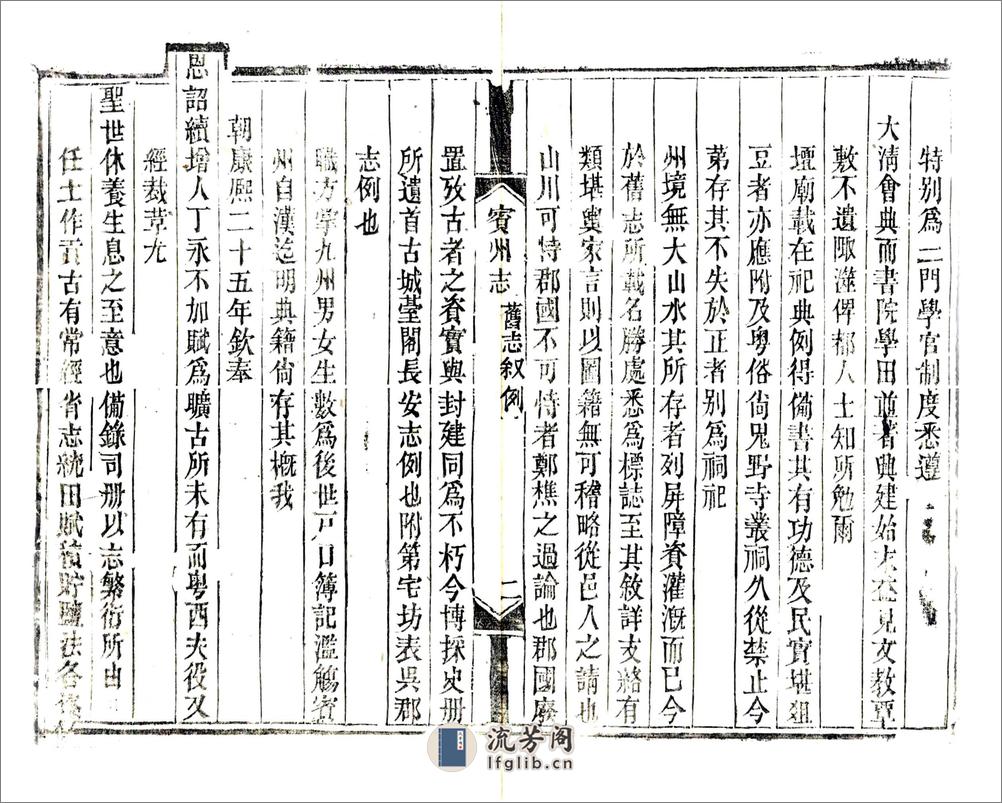 特別爲二門學官制度悉遵
大淸會典而書院學田並著典建始末
見文教覃
敷不遺陬澨俾都人士知所勉爾
壇廟載在祀典例得備書其有功德及民實堪俎
豆者亦應附及粵俗尙鬼野寺叢祠久從禁止今
苐存其不失於正者別爲祠祀
州境無大山水其所存者列屏障資灌漑而已今
於舊志所載名勝處悉爲標誌至其敘詳支絡有
類堪輿家言則以圖籍無可稽略從邑人之請也
山川可恃郡國不可恃者鄭樵之過論也郡國廢
賓州志
舊志叙例
二
置攷古者之資實與封建同爲不朽今博採史册
所遺首古城臺閣長安志例也附第宅坊表吳郡
志例也
職方掌九州男女生數爲後世戸口簿記濫觴賓
州自漢迄明典籍尙存其概我
朝康熙二十五年欽奉
恩詔續增人丁永不加賦爲曠古所未有而粵西夫役又
經裁革尤
聖世休養生息之至意也備錄司册以志繁衍所由
任土作貢古有常經省志統田賦積貯鹽法各
流芳阁
lfglib.cn